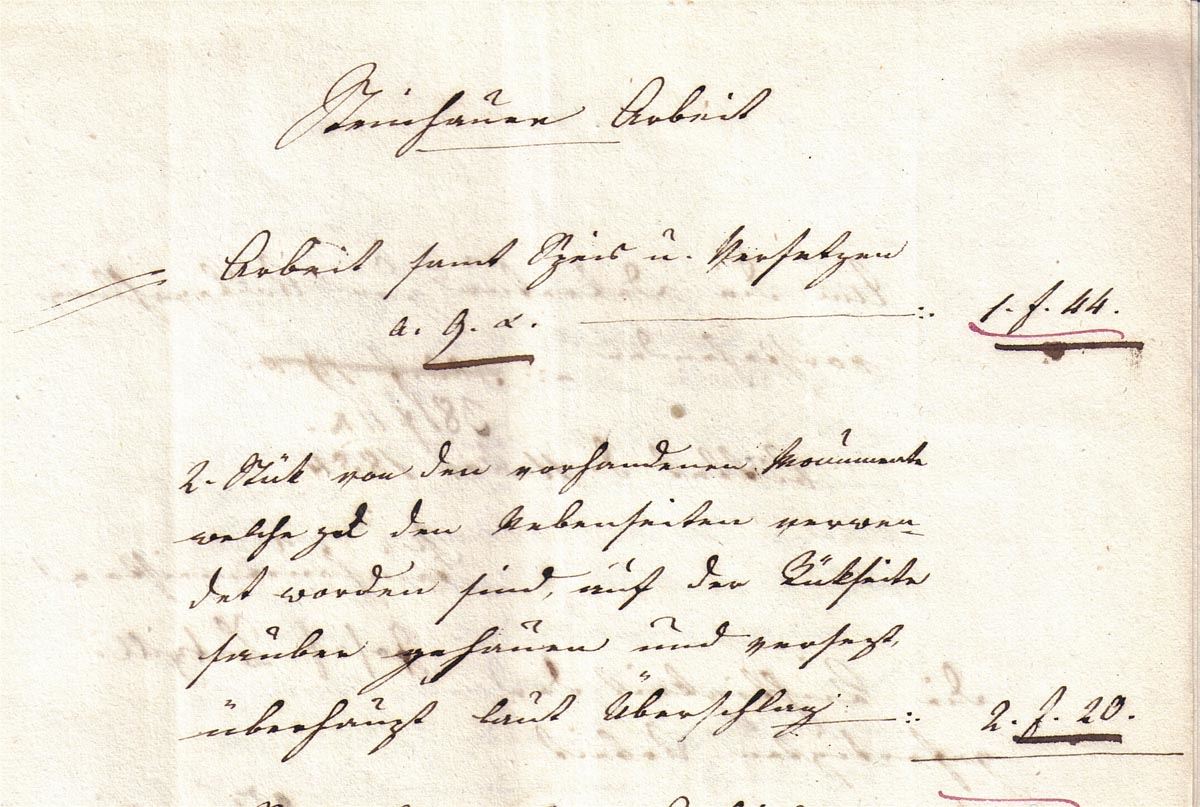 Steinhauer Arbeit
Arbeit samt Speis u. Versetzen
a. 9. x. 1. f. 44.
2. Stük von den vorhandenen Monumente
welche zu den Nebenseiten verwen-
det worden sind, auf der Rükseite
sauber gehauen und versezt,
überhaupt laut Überschlag 2. f. 20.